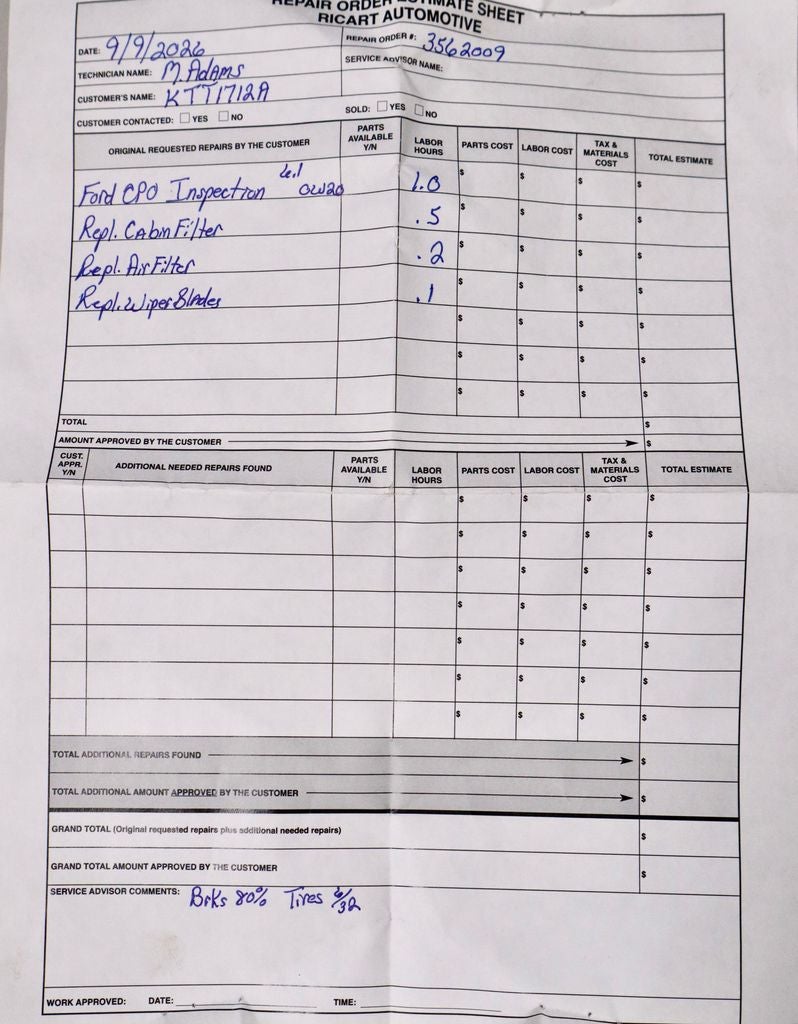 REPAIR ORDER ESTIMATE SHEET
RICART AUTOMOTIVE
DATE: 9/9/2026 REPAIR ORDER #: 3562009
TECHNICIAN NAME: M. Adams SERVICE ADVISOR NAME:
CUSTOMER'S NAME: KTT1712A
CUSTOMER CONTACTED: YES NO SOLD: YES NO
ORIGINAL REQUESTED REPAIRS BY THE CUSTOMER PARTS AVAILABLE Y/N LABOR HOURS PARTS COST LABOR COST TAX & MATERIALS COST TOTAL ESTIMATE
Ford CPO Inspection 6.1 0W20 1.0 $ $ $ $
Repl. Cabin Filter .5 $ $ $ $
Repl. Air Filter .2 $ $ $ $
Repl. Wiper Blades .1 $ $ $ $
$ $ $ $
$ $ $ $
$ $ $ $
TOTAL $
AMOUNT APPROVED BY THE CUSTOMER $
CUST. APPR. Y/N ADDITIONAL NEEDED REPAIRS FOUND PARTS AVAILABLE Y/N LABOR HOURS PARTS COST LABOR COST TAX & MATERIALS COST TOTAL ESTIMATE
$ $ $ $
$ $ $ $
$ $ $ $
$ $ $ $
$ $ $ $
$ $ $ $
$ $ $ $
TOTAL ADDITIONAL REPAIRS FOUND $
TOTAL ADDITIONAL AMOUNT APPROVED BY THE CUSTOMER $
GRAND TOTAL (Original requested repairs plus additional needed repairs) $
GRAND TOTAL AMOUNT APPROVED BY THE CUSTOMER $
SERVICE ADVISOR COMMENTS: Brks 80% Tires 6/32
WORK APPROVED: DATE: TIME: